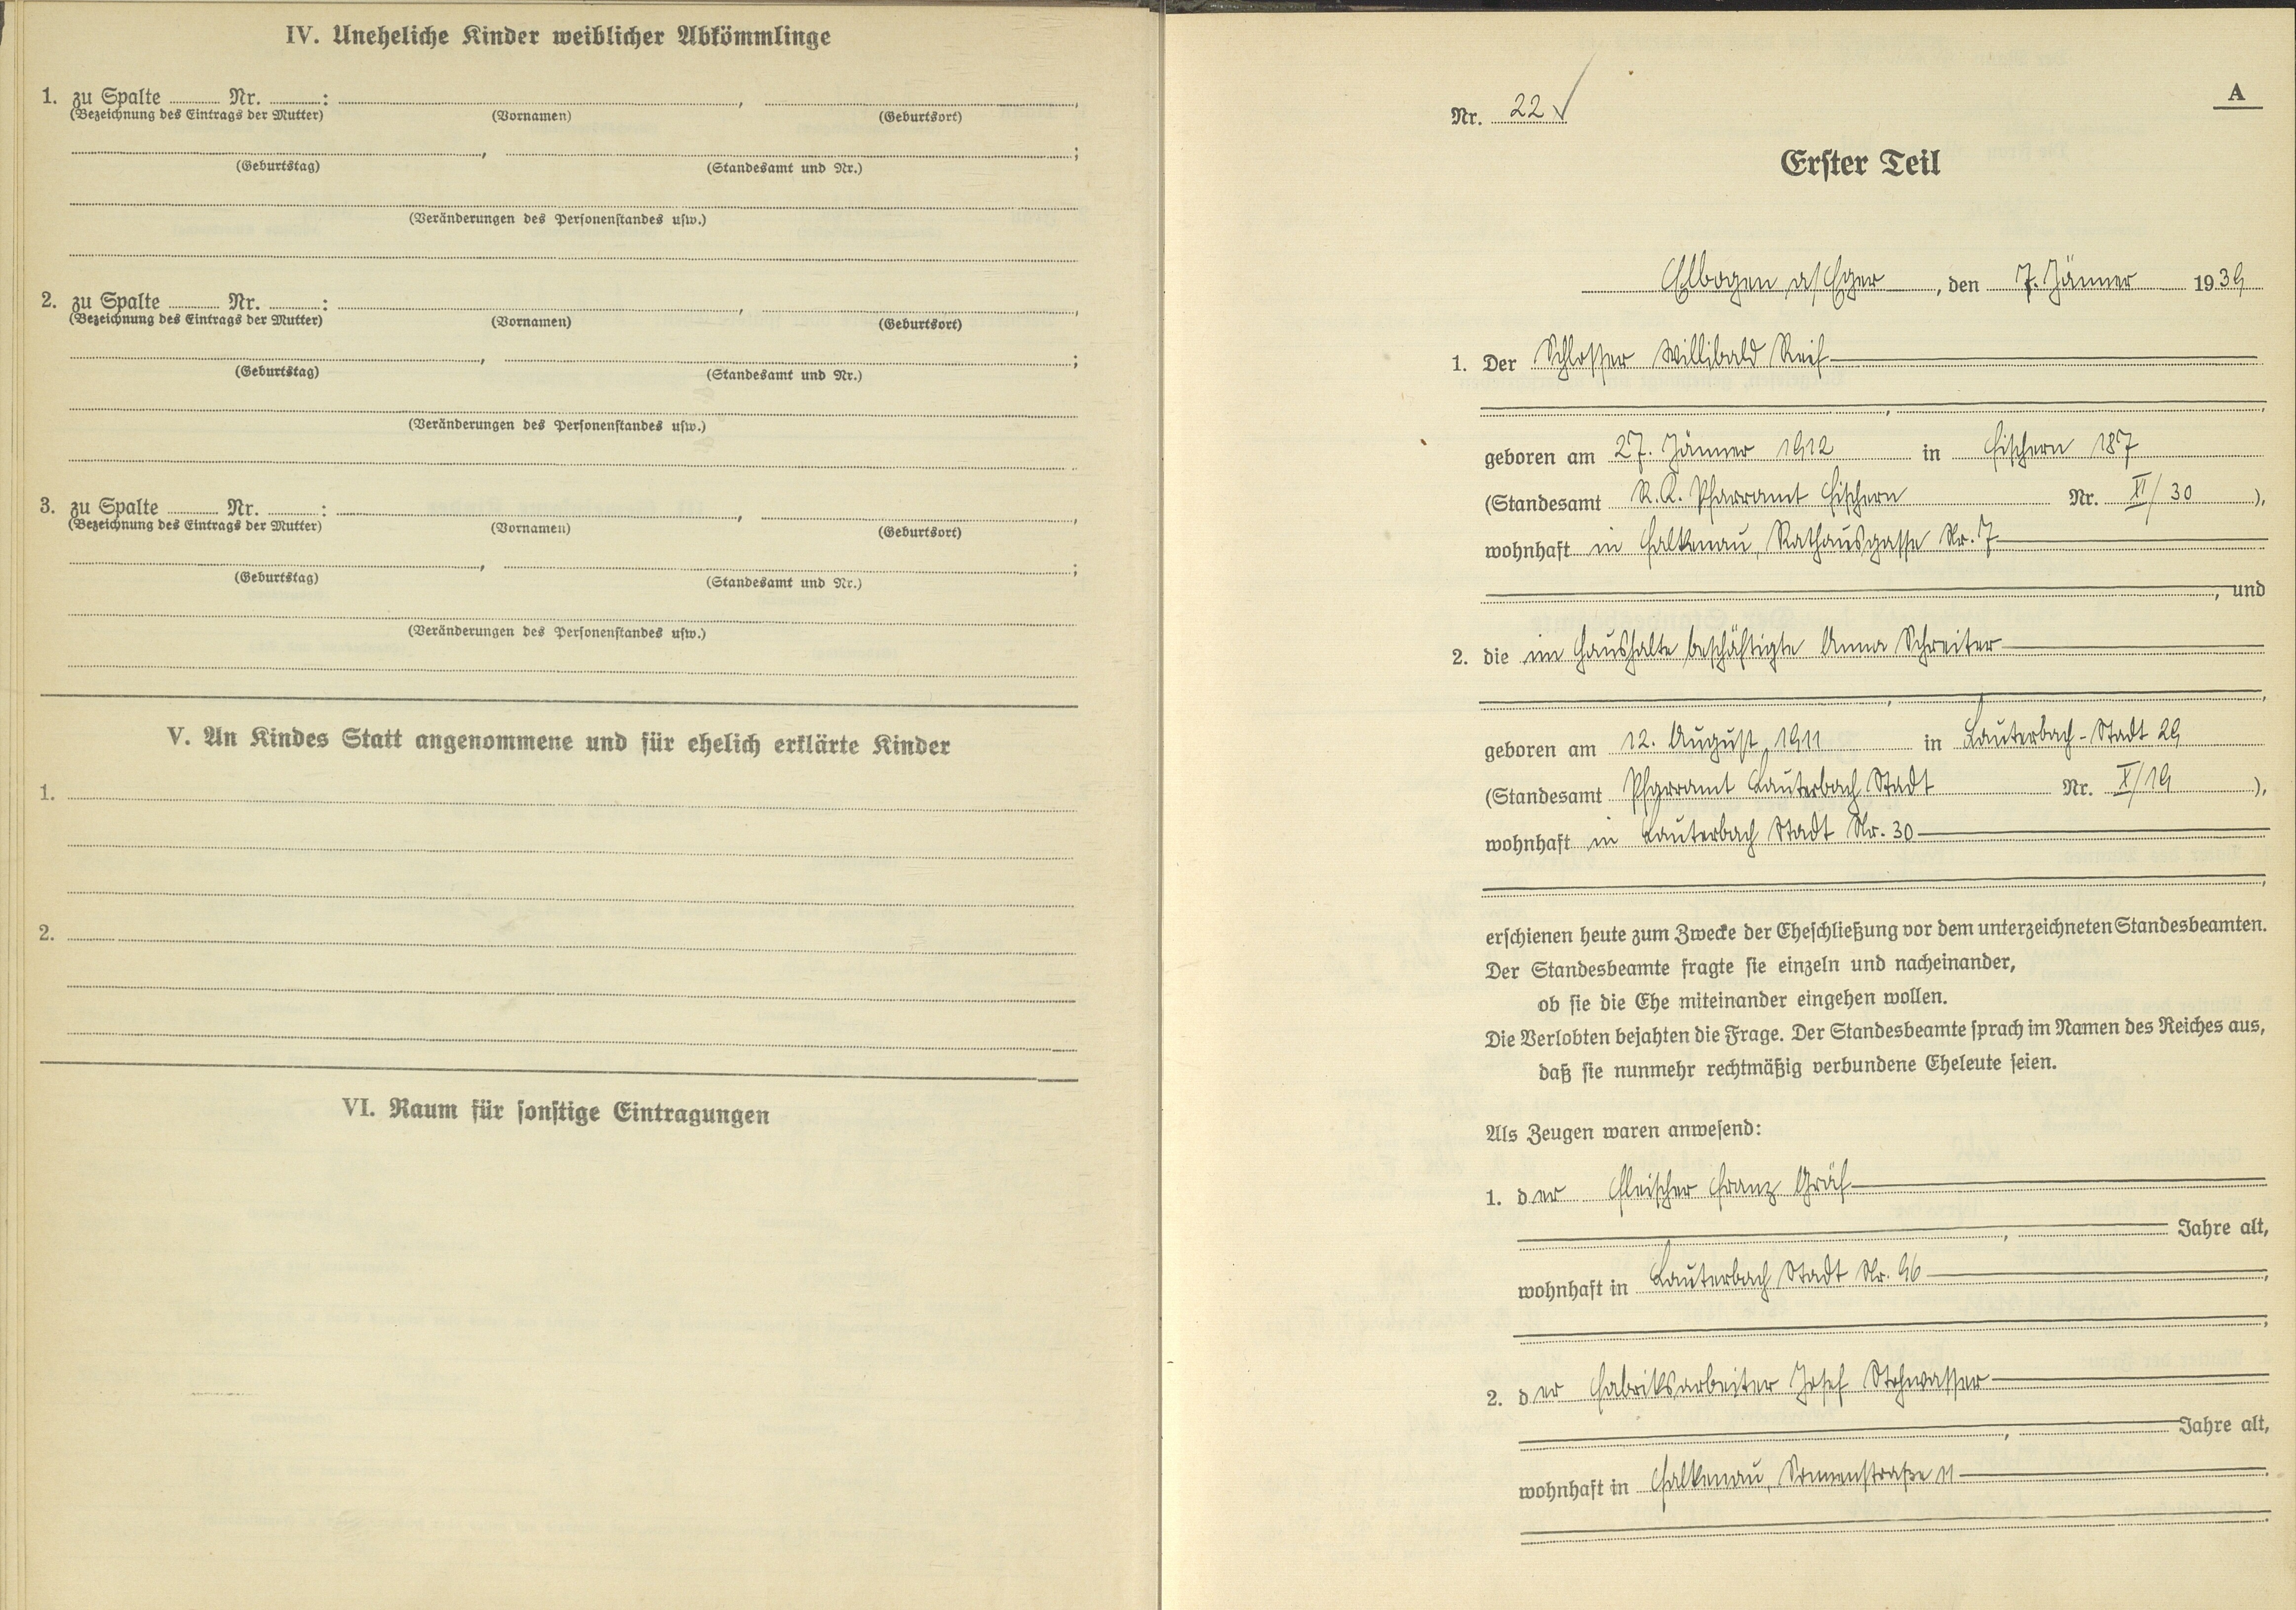 IV. Uneheliche Kinder weiblicher Abkömmlinge
1. zu Spalte ........ Nr. ........: ........, ........,
(Bezeichnung des Eintrags der Mutter) (Vornamen) (Geburtsort)
........, ........;
(Geburtstag) (Standesamt und Nr.)
(Veränderungen des Personenstandes usw.)
2. zu Spalte ........ Nr. ........: ........, ........,
(Bezeichnung des Eintrags der Mutter) (Vornamen) (Geburtsort)
........, ........;
(Geburtstag) (Standesamt und Nr.)
(Veränderungen des Personenstandes usw.)
3. zu Spalte ........ Nr. ........: ........, ........,
(Bezeichnung des Eintrags der Mutter) (Vornamen) (Geburtsort)
........, ........;
(Geburtstag) (Standesamt und Nr.)
(Veränderungen des Personenstandes usw.)
V. An Kindes Statt angenommene und für ehelich erklärte Kinder
1.
2.
VI. Raum für sonstige Eintragungen
A
Nr. 22
Erster Teil
Elbogen a/Eger, den 7. Jänner 1939
1. Der Schlosser Willibald Reif
geboren am 27. Jänner 1912 in Fischern 187
(Standesamt R.K. Pfarramt Fischern Nr. XI/30),
wohnhaft in Falkenau, Rathausgasse Nr. 7
, und
2. die im Haushalte beschäftigte Anna Schreiter
geboren am 12. August 1911 in Lauterbach-Stadt 29
(Standesamt Pfarramt Lauterbach Stadt Nr. X/19),
wohnhaft in Lauterbach Stadt Nr. 30
erschienen heute zum Zwecke der Eheschließung vor dem unterzeichneten Standesbeamten.
Der Standesbeamte fragte sie einzeln und nacheinander,
ob sie die Ehe miteinander eingehen wollen.
Die Verlobten bejahten die Frage. Der Standesbeamte sprach im Namen des Reiches aus,
daß sie nunmehr rechtmäßig verbundene Eheleute seien.
Als Zeugen waren anwesend:
1. der Fleischer Franz Gräf
Jahre alt,
wohnhaft in Lauterbach Stadt Nr. 96
2. der Fabriksarbeiter Josef Stohwasser
Jahre alt,
wohnhaft in Falkenau, Sonnenstraße 11